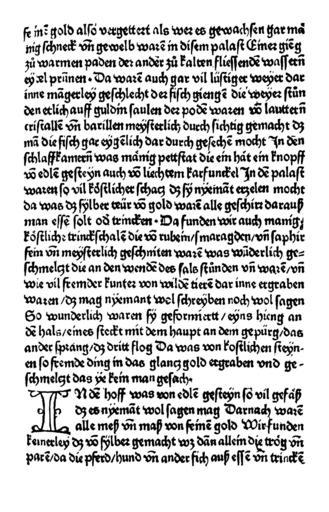 ſe inẽ gold alſo vergettert als wer es gewachſen gar mã
nig ſchneck vñ gewelb warẽ in diſem palaſt Einer gieng
zů warmen paden der ander zů kalten flieſſende waſſern
ey zel prũnen · Da warẽ auch gar vil lüſtiger weyer dar
inne mãgerley geſchlecht der fiſch giengẽ die weyer ſtůn
den etlich auff guldin ſaulen der podẽ waren võ lauttern
criſtallẽ vñ barillen meyſterlich durch ſichtig gemacht dz
mã die fiſch gar eygẽlich dar durch geſechẽ mocht In den
ſchlaffkamern was mãnig petſtat die ein hãt ein knopff
võ edlẽ geſteyn auch võ liechtem karfunckel In dẽ palaſt
waren ſo vil köſtlicher ſchacz dz ſy nyemãt erzelen mocht
da was dz ſylber teür võ gold warẽ alle geſchirz darauß
man eſſẽ ſolt od trincken · Da funden wir auch manig
köſtliche trinckſchalẽ die võ rubein/ſmaragden/vñ ſaphir
ſein vñ meyſterlich geſchniten warẽ was wũderlich ge-
ſchmelzt die an den wende des ſals ſtůnden vñ warẽ/vñ
wie vil fremder kunter von wilde tierẽ dar inne ergraben
waren/dz mag nyemant wol ſchreyben noch wol ſagen
So wunderlich waren ſy geformiertt/eyns hieng an
dẽ hals/eines ſteckt mit dem haupt an dem gepürg/das
ander ſprang/dz dritt flog Da was von koſtlichen ſteyn-
en ſo fremde ding in das glancz gold ergraben und ge-
ſchmelzt das ye kein man geſach
IN dẽ hoff was von edlẽ geſteyn ſo vil gefäß
dz es nyemãt wol ſagen mag Darnach warẽ
alle meß vñ maß von feinẽ gold Wir funden
keinerley dz võ ſylber gemacht wz dãn allein die trög vñ
parẽ/da die pferd/hund vñ ander ſich auß eſſẽ vñ trincke